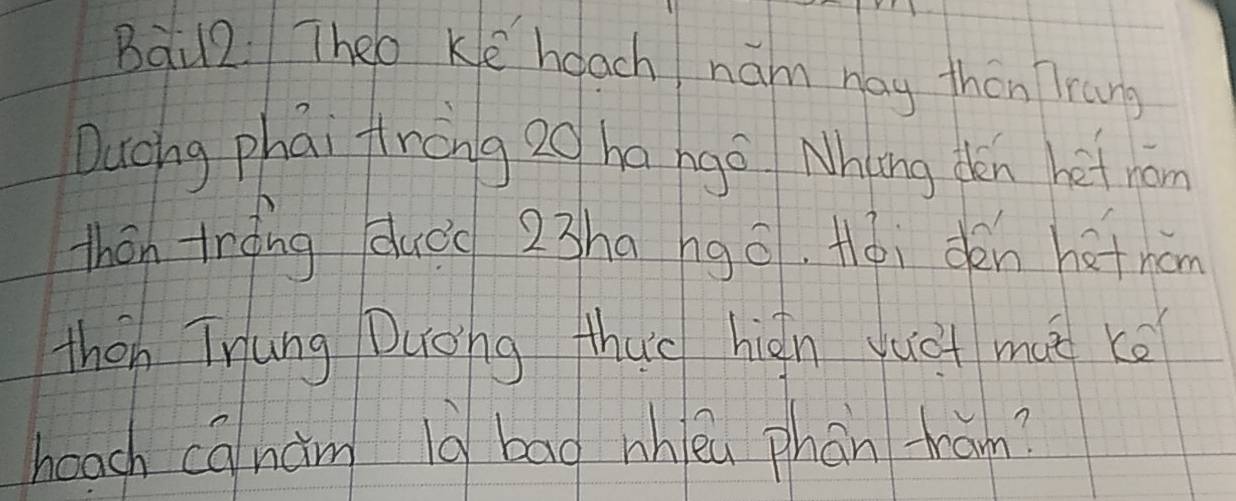 Bài 2: Theo kế hoạch, năm nay thôn Trung
Dương phải trồng 20 ha ngô. Nhưng đến hết năm
thôn trồng được 23 ha ngô. Hỏi đến hết năm
thôn Trung Dương thực hiện vượt mức kế
hoạch cả năm là bao nhiêu phần trăm?